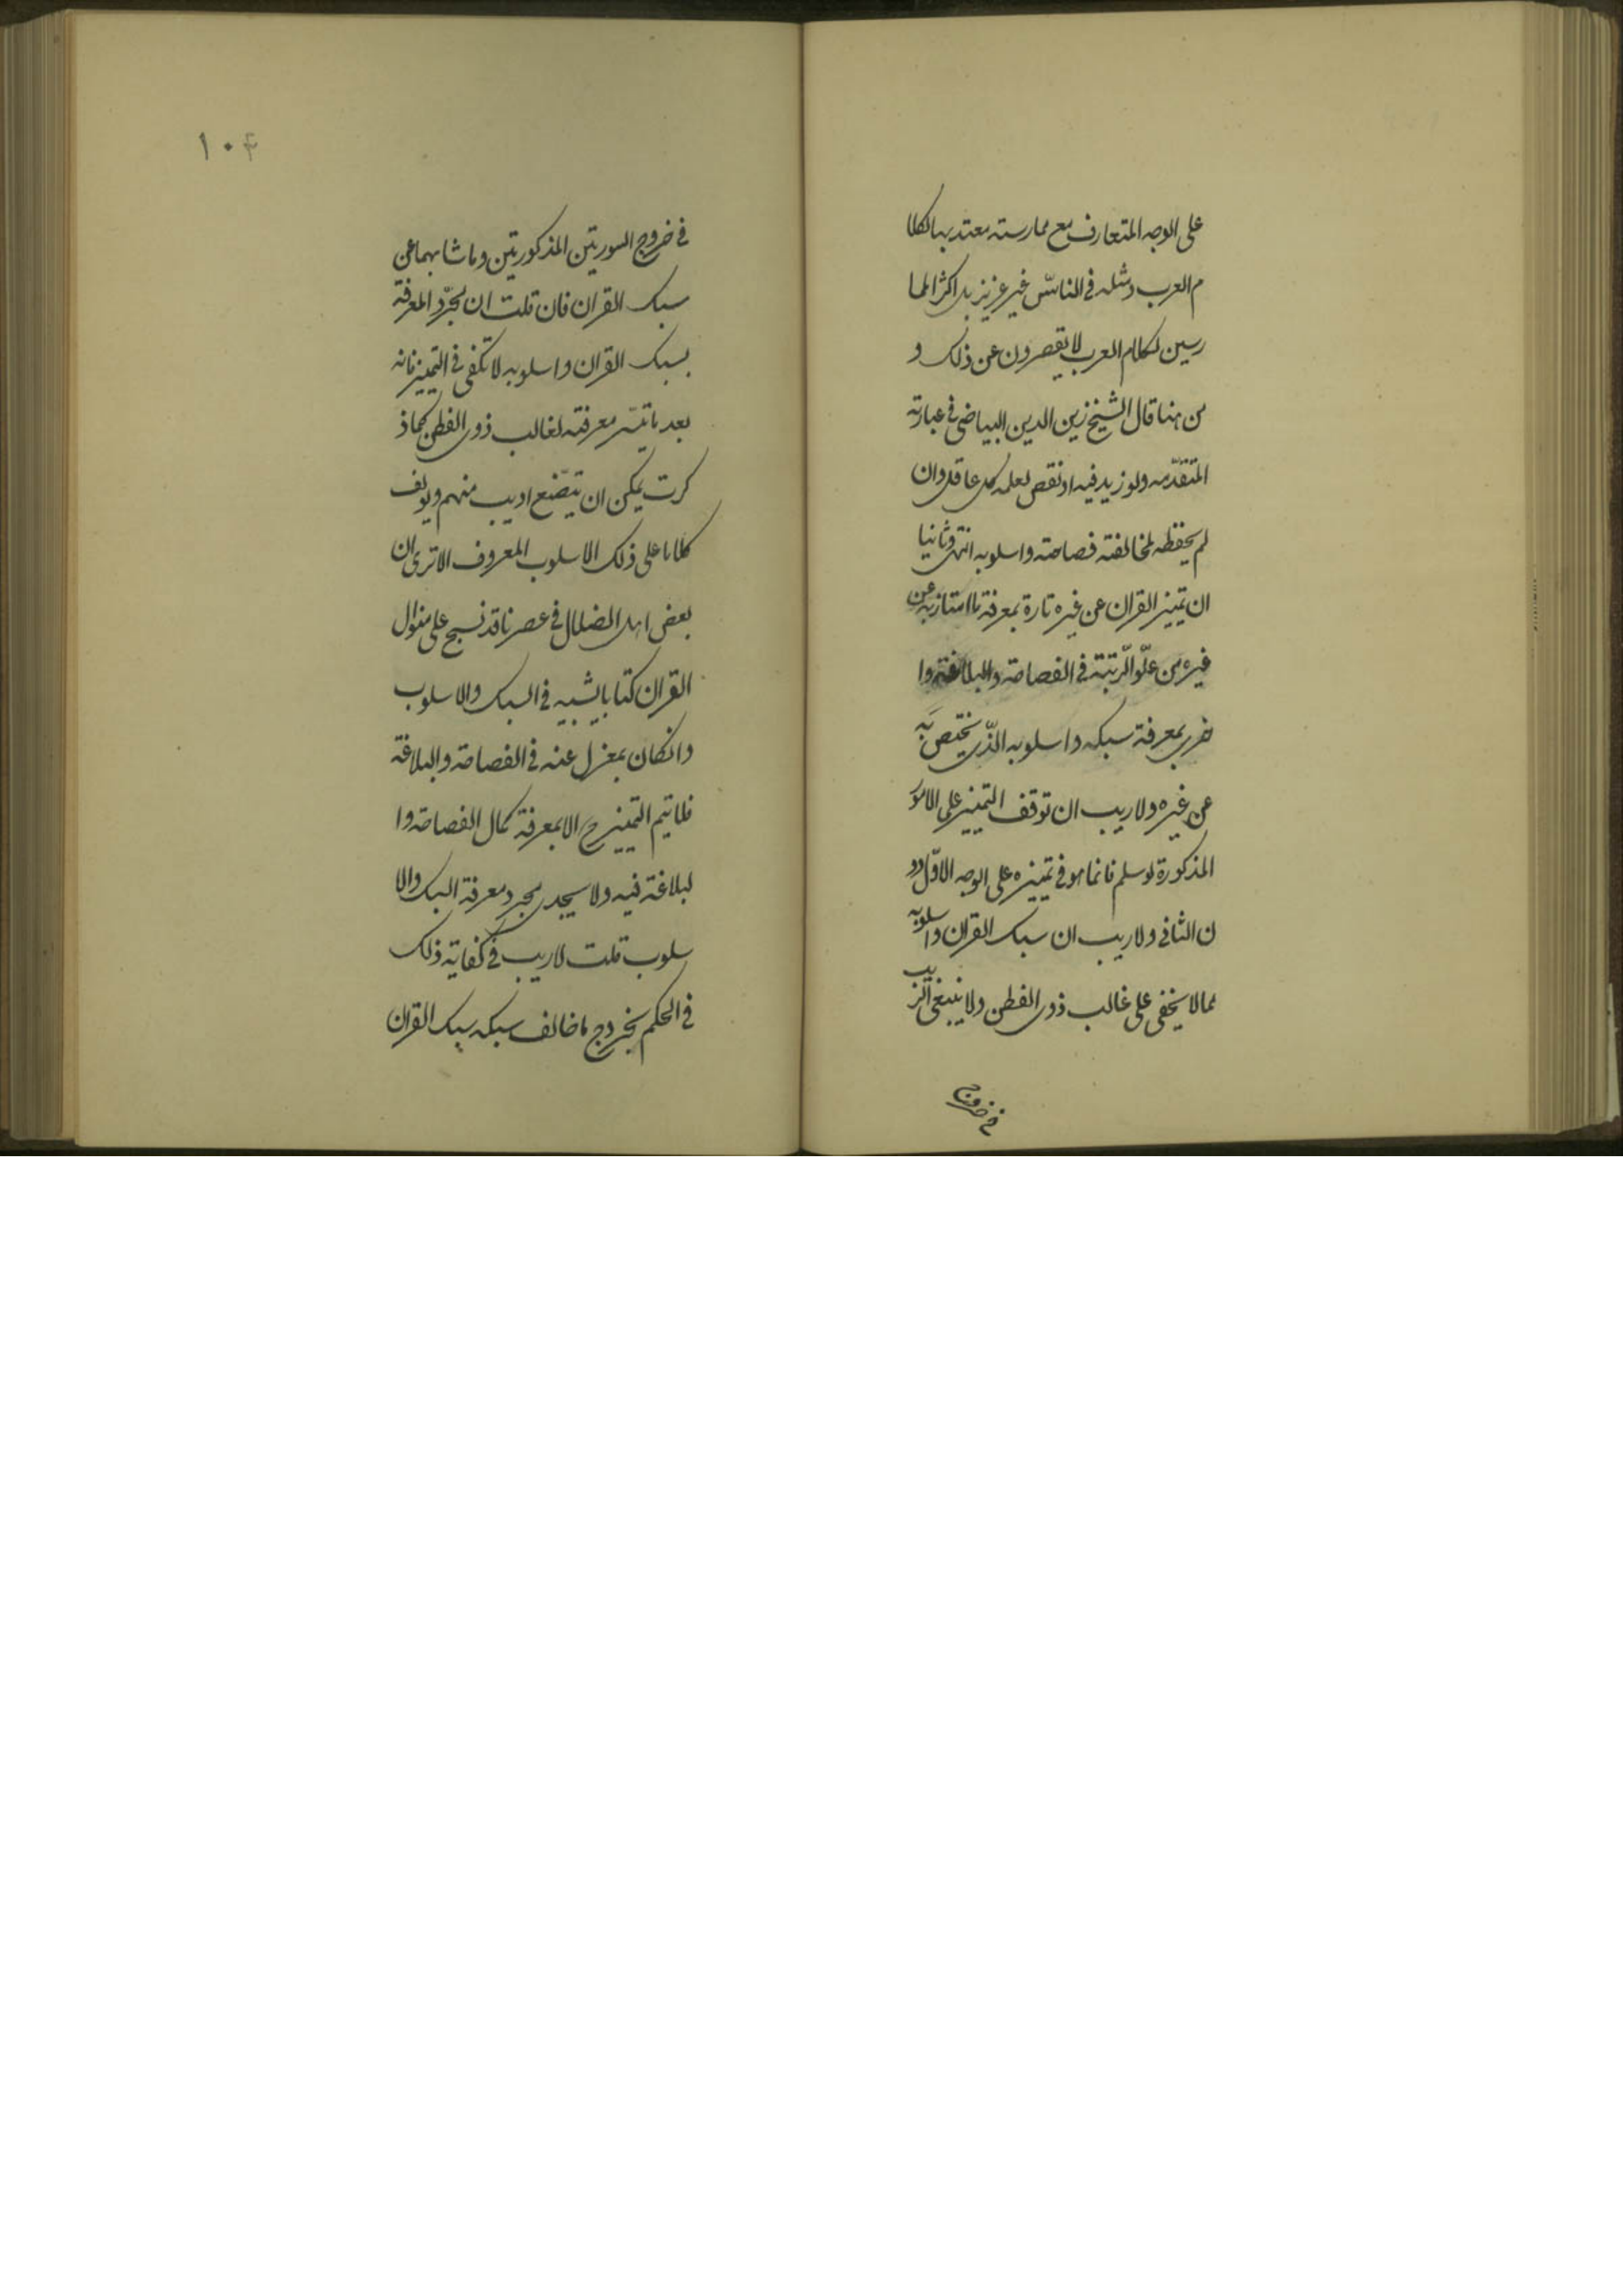 على الوجه المتعارف مع ممارسته معتد بها لكلا
م العرب ومثله في الناس غير عزيز بل اكثر المما
رسين لكلام العرب لا يقصرون عن ذلك و
من هنا قال الشيخ زين الدين البياضي في عبارته
المتقدمه ولو زيد فيه او نقص لعلمه كل عاقل وان
لم يحفظه لمخالفته فصاحته واسلوبه انتهى وثانيا
ان تميز القران عن غيره تارة بمعرفة ما امتاز به عن
غيره من علوّ الرّتبة في الفصاحة والبلاغة وا
خرى بمعرفة سبكه واسلوبه الذّي يختص به
عن غيره ولاريب ان توقف التميز على الامور
المذكورة لو سلم فانما هو في تميزه على الوجه الاوّل دو
ن الثاني ولاريب ان سبك القران واسلوبه
مما لا يخفى على غالب ذوى الفطن ولا ينبغي الريب
في خروج
١٠٤
في خروج السورتين المذكورتين وما شابههما عن
سبك القران فان قلت ان مجرّد المعرفة
بسبك القران واسلوبه لا تكفي في التميز فانه
بعد ما تيسّر معرفته لغالب ذوى الفطن كما ذ
كرت يمكن ان يتصّنع اديب منهم ويولف
كلاما على ذلك الاسلوب المعروف الا ترى ان
بعض اهل الضلال في عصرنا قد نسج على منوال
القران كتابا يشبهه في السبك والاسلوب
وانكان بمعزل عنه في الفصاحة والبلاغة
فلا يتم التميز ح الا بمعرفة كمال الفصاحة وا
لبلاغة فيه ولا يجدى مجرد معرفة السبك والا
سلوب قلت لاريب في كفاية ذلك
في الحكم بخروج ما خالف سبكه سبك القران